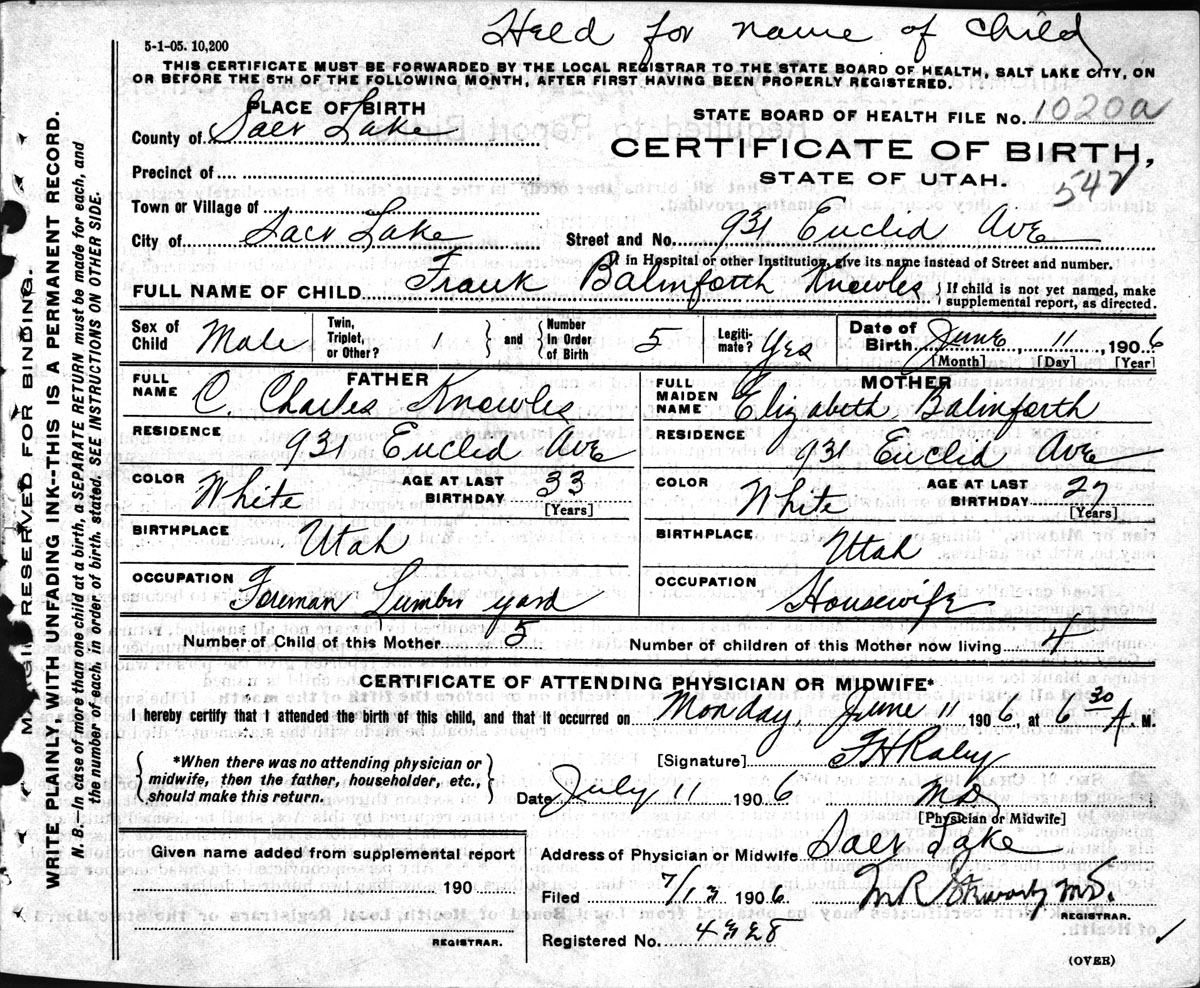 Held for name of child
5-1-05. 10,200
THIS CERTIFICATE MUST BE FORWARDED BY THE LOCAL REGISTRAR TO THE STATE BOARD OF HEALTH, SALT LAKE CITY, ON
OR BEFORE THE 5TH OF THE FOLLOWING MONTH, AFTER FIRST HAVING BEEN PROPERLY REGISTERED.
PLACE OF BIRTH
STATE BOARD OF HEALTH FILE NO. 1020a
County of Salt Lake
CERTIFICATE OF BIRTH,
Precinct of
STATE OF UTAH.
547
Town or Village of
City of Salt Lake Street and No. 931 Euclid Ave
If in Hospital or other Institution, give its name instead of Street and number.
FULL NAME OF CHILD Frank Balmforth Knowles { If child is not yet named, make supplemental report, as directed.
Sex of Child Male Twin, Triplet, or Other? 1 } and { Number In Order of Birth 5 Legiti- mate? Yes Date of Birth June 11, 1906
[Month] [Day] [Year]
FATHER MOTHER
FULL NAME C. Charles Knowles FULL MAIDEN NAME Elizabeth Balmforth
RESIDENCE 931 Euclid Ave RESIDENCE 931 Euclid Ave
COLOR White AGE AT LAST BIRTHDAY 33 [Years] COLOR White AGE AT LAST BIRTHDAY 27 [Years]
BIRTHPLACE Utah BIRTHPLACE Utah
OCCUPATION Foreman Lumber yard OCCUPATION Housewife
Number of Child of this Mother 5 Number of children of this Mother now living 4
CERTIFICATE OF ATTENDING PHYSICIAN OR MIDWIFE*
I hereby certify that I attended the birth of this child, and that it occurred on Monday, June 11 1906, at 6 30 A. M.
*When there was no attending physician or midwife, then the father, householder, etc., should make this return.
[Signature] F H Raley
Date July 11 1906 MD
[Physician or Midwife]
Given name added from supplemental report
Address of Physician or Midwife Salt Lake
190
Filed 1906 M.D.
REGISTRAR.
REGISTRAR.
Registered No.
(OVER)
MARGIN RESERVED FOR BINDING.
WRITE PLAINLY WITH UNFADING INK--THIS IS A PERMANENT RECORD.
N. B.--In case of more than one child at a birth, a SEPARATE RETURN must be made for each, and
the number of each, in order of birth, stated. SEE INSTRUCTIONS ON OTHER SIDE.